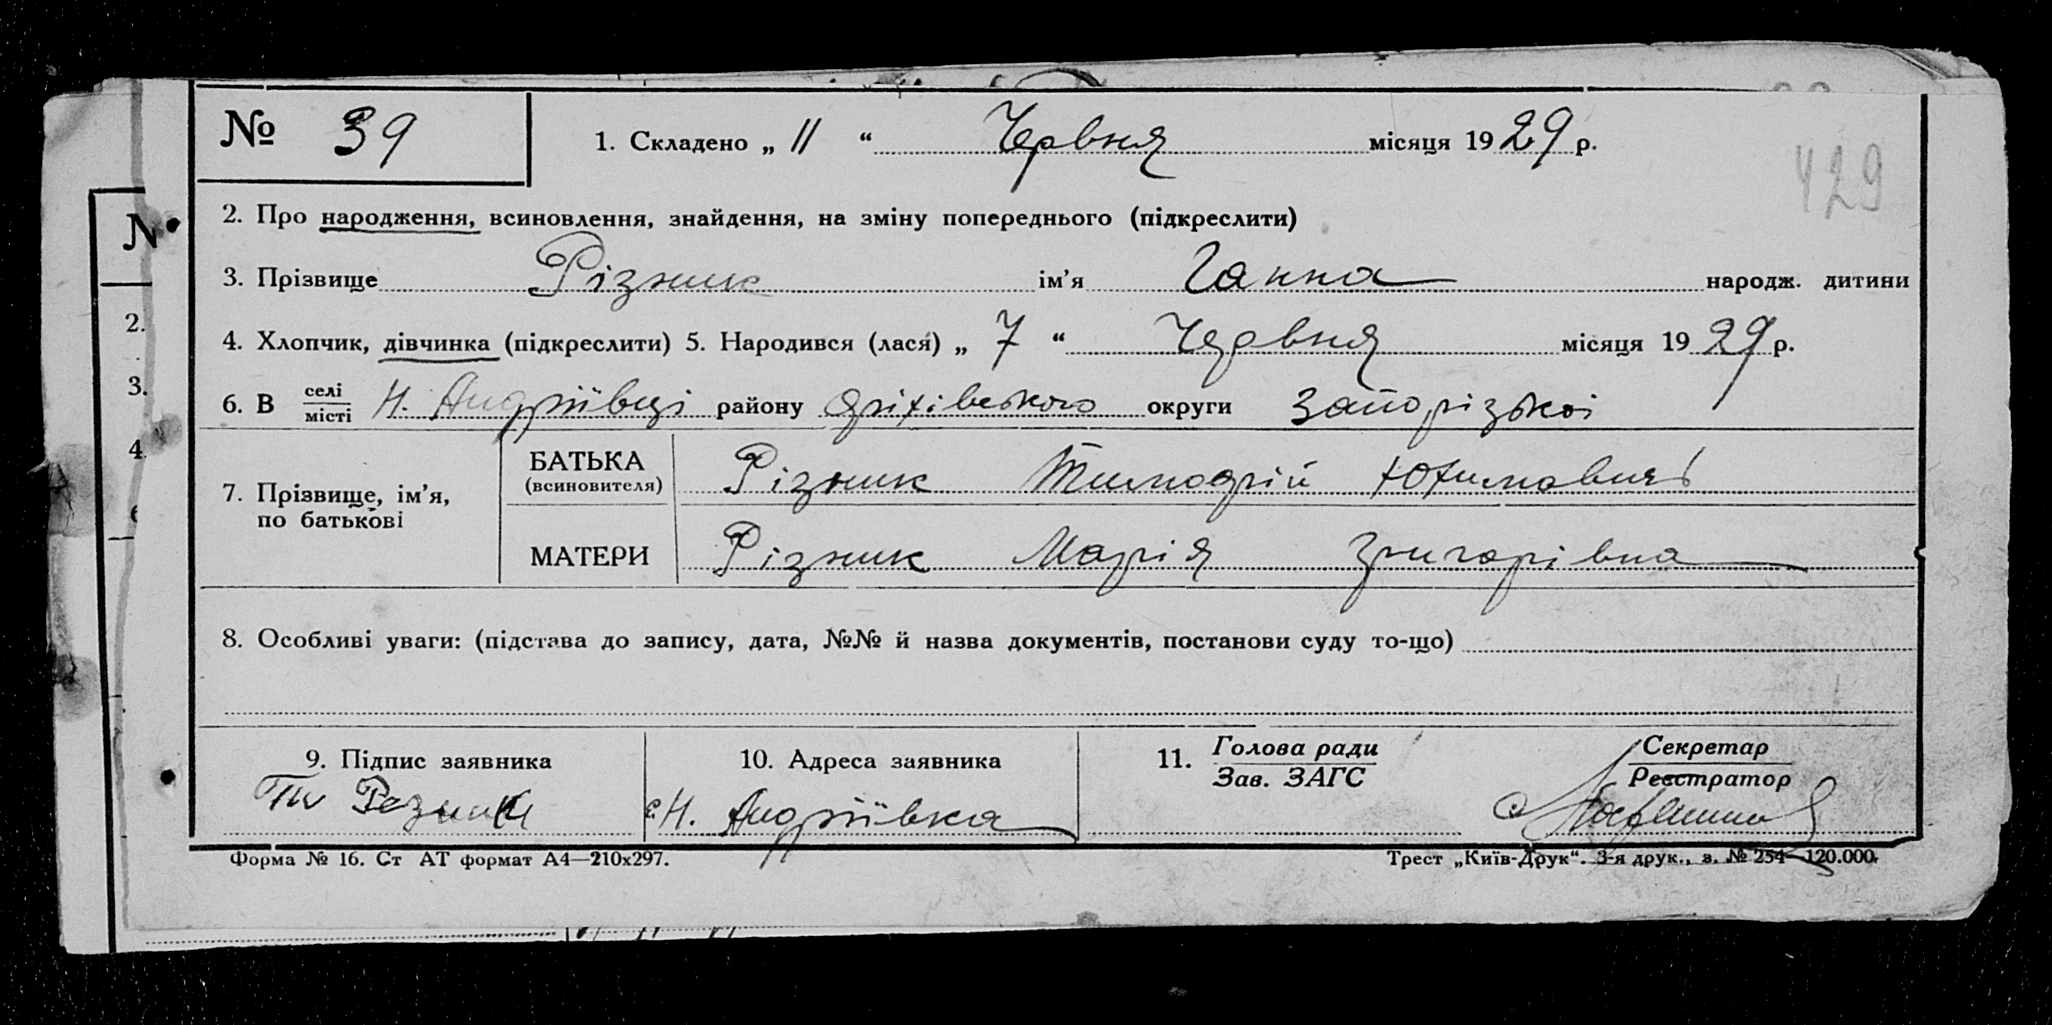 № 39
1. Складено „ 11 “ Червня місяця 1929 р.
429
2. Про народження, всиновлення, знайдення, на зміну попереднього (підкреслити)
3. Прізвище Різник ім’я Ганна народж. дитини
4. Хлопчик, дівчинка (підкреслити) 5. Народився (лася) „ 7 “ Червня місяця 1929 р.
6. В селі місті Н. Андріївці району оріхівського округи Запорізькоі
7. Прізвище, ім’я, по батькові
БАТЬКА (всиновителя) Різник Тимофій Юхимович
МАТЕРИ Різник Марія Григорівна
8. Особливі уваги: (підстава до запису, дата, №№ й назва документів, постанови суду то-що)
9. Підпис заявника
10. Адреса заявника
11. Голова ради Зав. ЗАГС
Секретар Реєстратор
Резник
с. Н. Андріївка
Форма № 16. Ст АТ формат А4—210х297.
Трест „Київ-Друк“. 3-я друк., з. № 254—120.000.
N
2.
3.
4.